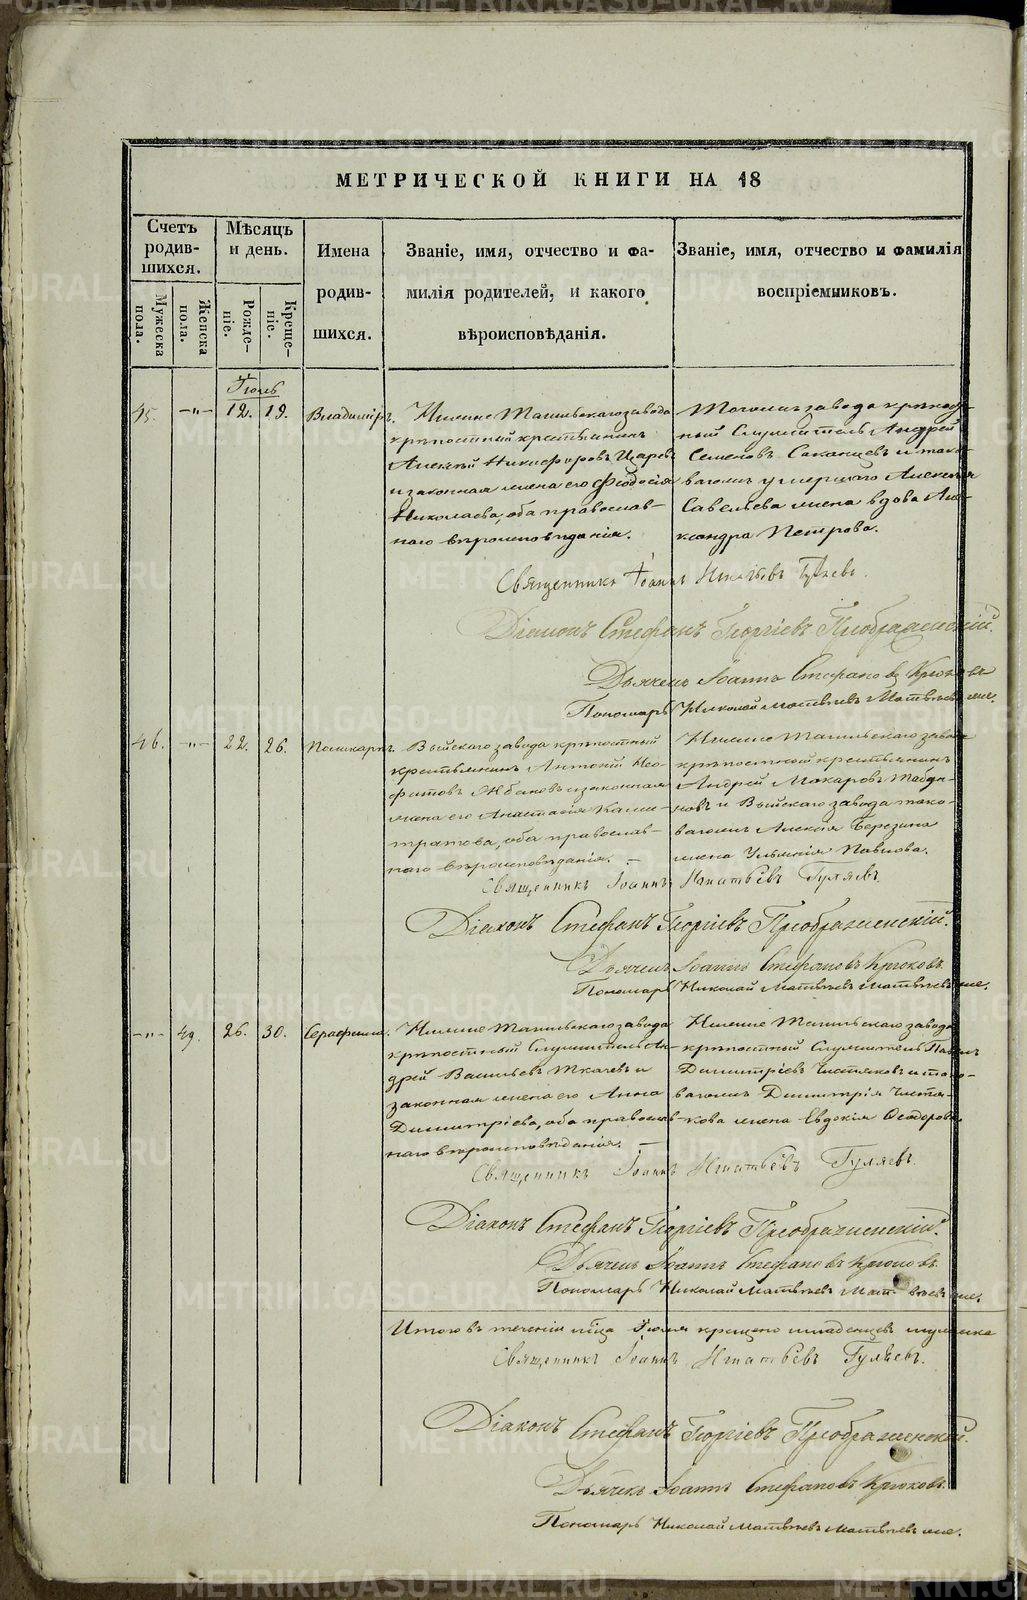 МЕТРИЧЕСКОЙ КНИГИ НА 18
Счетъ родив-шихся.
Мужеска пола.
Женска пола.
Мѣсяцъ и день.
Рожде-ніе.
Креще-ніе.
Имена родив-шихся.
Званіе, имя, отчество и фа-
милія родителей, и какого
вѣроисповѣданія.
Званіе, имя, отчество и фамилія
воспріемниковъ.
Іюль
45. -"- 12. 19. Владиміръ.
Нижне Тагильскаго завода
крѣпостный крестьянинъ
Алексѣй Никифоровъ Царевъ
и законная жена его Ѳеодосія
Николаева, оба православ-
наго вѣроисповѣданія.
Тогожъ завода крѣпост-
ный Служитель Андрей
Семеновъ и тако-
вагожъ умершаго Алексѣя
Савельева жена вдова Але-
ксандра Петрова.
Священникъ Іоаннъ Игнатьевъ Гуляевъ.
Діаконъ Стефанъ Георгіевъ Преображенскій.
Дьячекъ Іоаннъ Стефановъ Крюковъ
Пономарь Николай Матвѣевъ Матвѣевъ же.
46. -"- 22. 26. Поликарпъ.
Выйскаго завода крѣпостный
крестьянинъ Антоній Нео-
фитовъ и законная
жена его Анастасія Калли-
стратова, оба православ-
наго вѣроисповѣданія. —
Нижне Тагильскаго завода
крѣпостной крестьянинъ
Андрей Макаровъ
и Выйскаго завода тако-
вагожъ Алексія Березина
жена Ульянія Павлова.
Священникъ Іоаннъ Игнатьевъ Гуляевъ.
Діаконъ Стефанъ Георгіевъ Преображенскій.
Дьячекъ Іоаннъ Стефановъ Крюковъ.
Пономарь Николай Матвѣевъ Матвѣевъ же.
-"- 49. 26. 30. Серафима.
Нижне Тагильскаго завода
крѣпостный Служитель Ан-
дрей Васильевъ Ткачевъ и
законная жена его Анна
Димитріева, оба православ-
наго вѣроисповѣданія. —
Нижне Тагильскаго завода
крѣпостный Служитель Павелъ
Димитріевъ Чистяковъ и тако-
вагожъ Димитрія Чистя-
кова жена Евдокія Ѳеодорова.
Священникъ Іоаннъ Игнатьевъ Гуляевъ.
Діаконъ Стефанъ Георгіевъ Преображенскій.
Дьячекъ Іоаннъ Стефановъ Крюковъ.
Пономарь Николай Матвѣевъ Матвѣевъ же.
Итого въ теченіи мѣсяца Іюля крещено младенцевъ мужеска
Священникъ Іоаннъ Игнатьевъ Гуляевъ.
Діаконъ Стефанъ Георгіевъ Преображенскій.
Дьячекъ Іоаннъ Стефановъ Крюковъ.
Пономарь Николай Матвѣевъ Матвѣевъ же.
METRIKI.GASO-URAL.RU